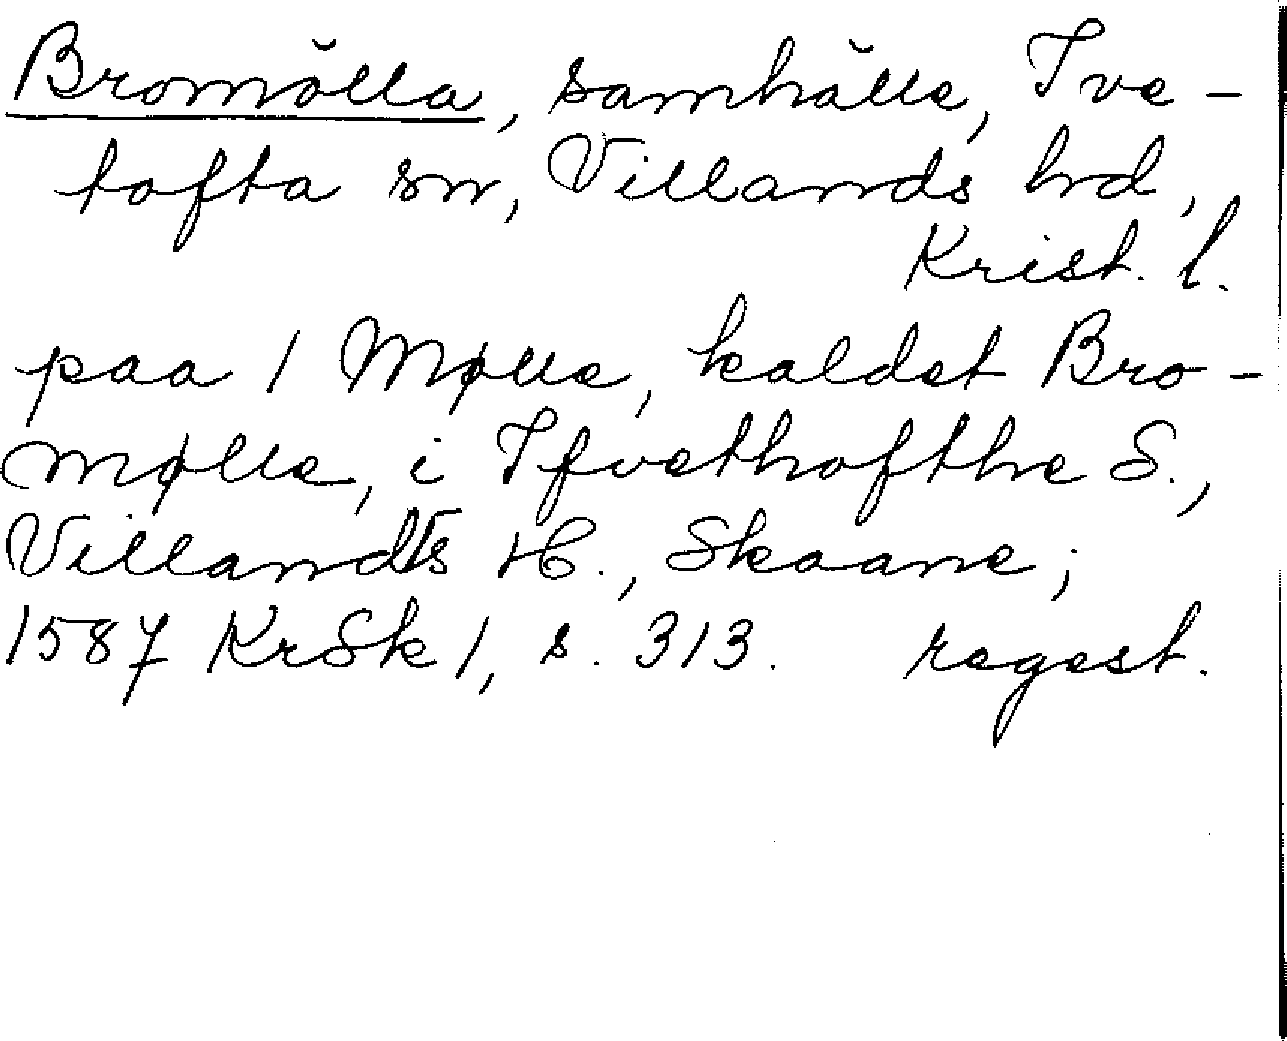 Bromölla, samhälle, Ive-
tofta sn, Villands hd,
Krist. l.
paa 1 Mølle, kaldet Bro-
mølle, i Ifvethofthe S.,
Villandts H., Skaane;
1587 KrSk 1, s. 313. regest.